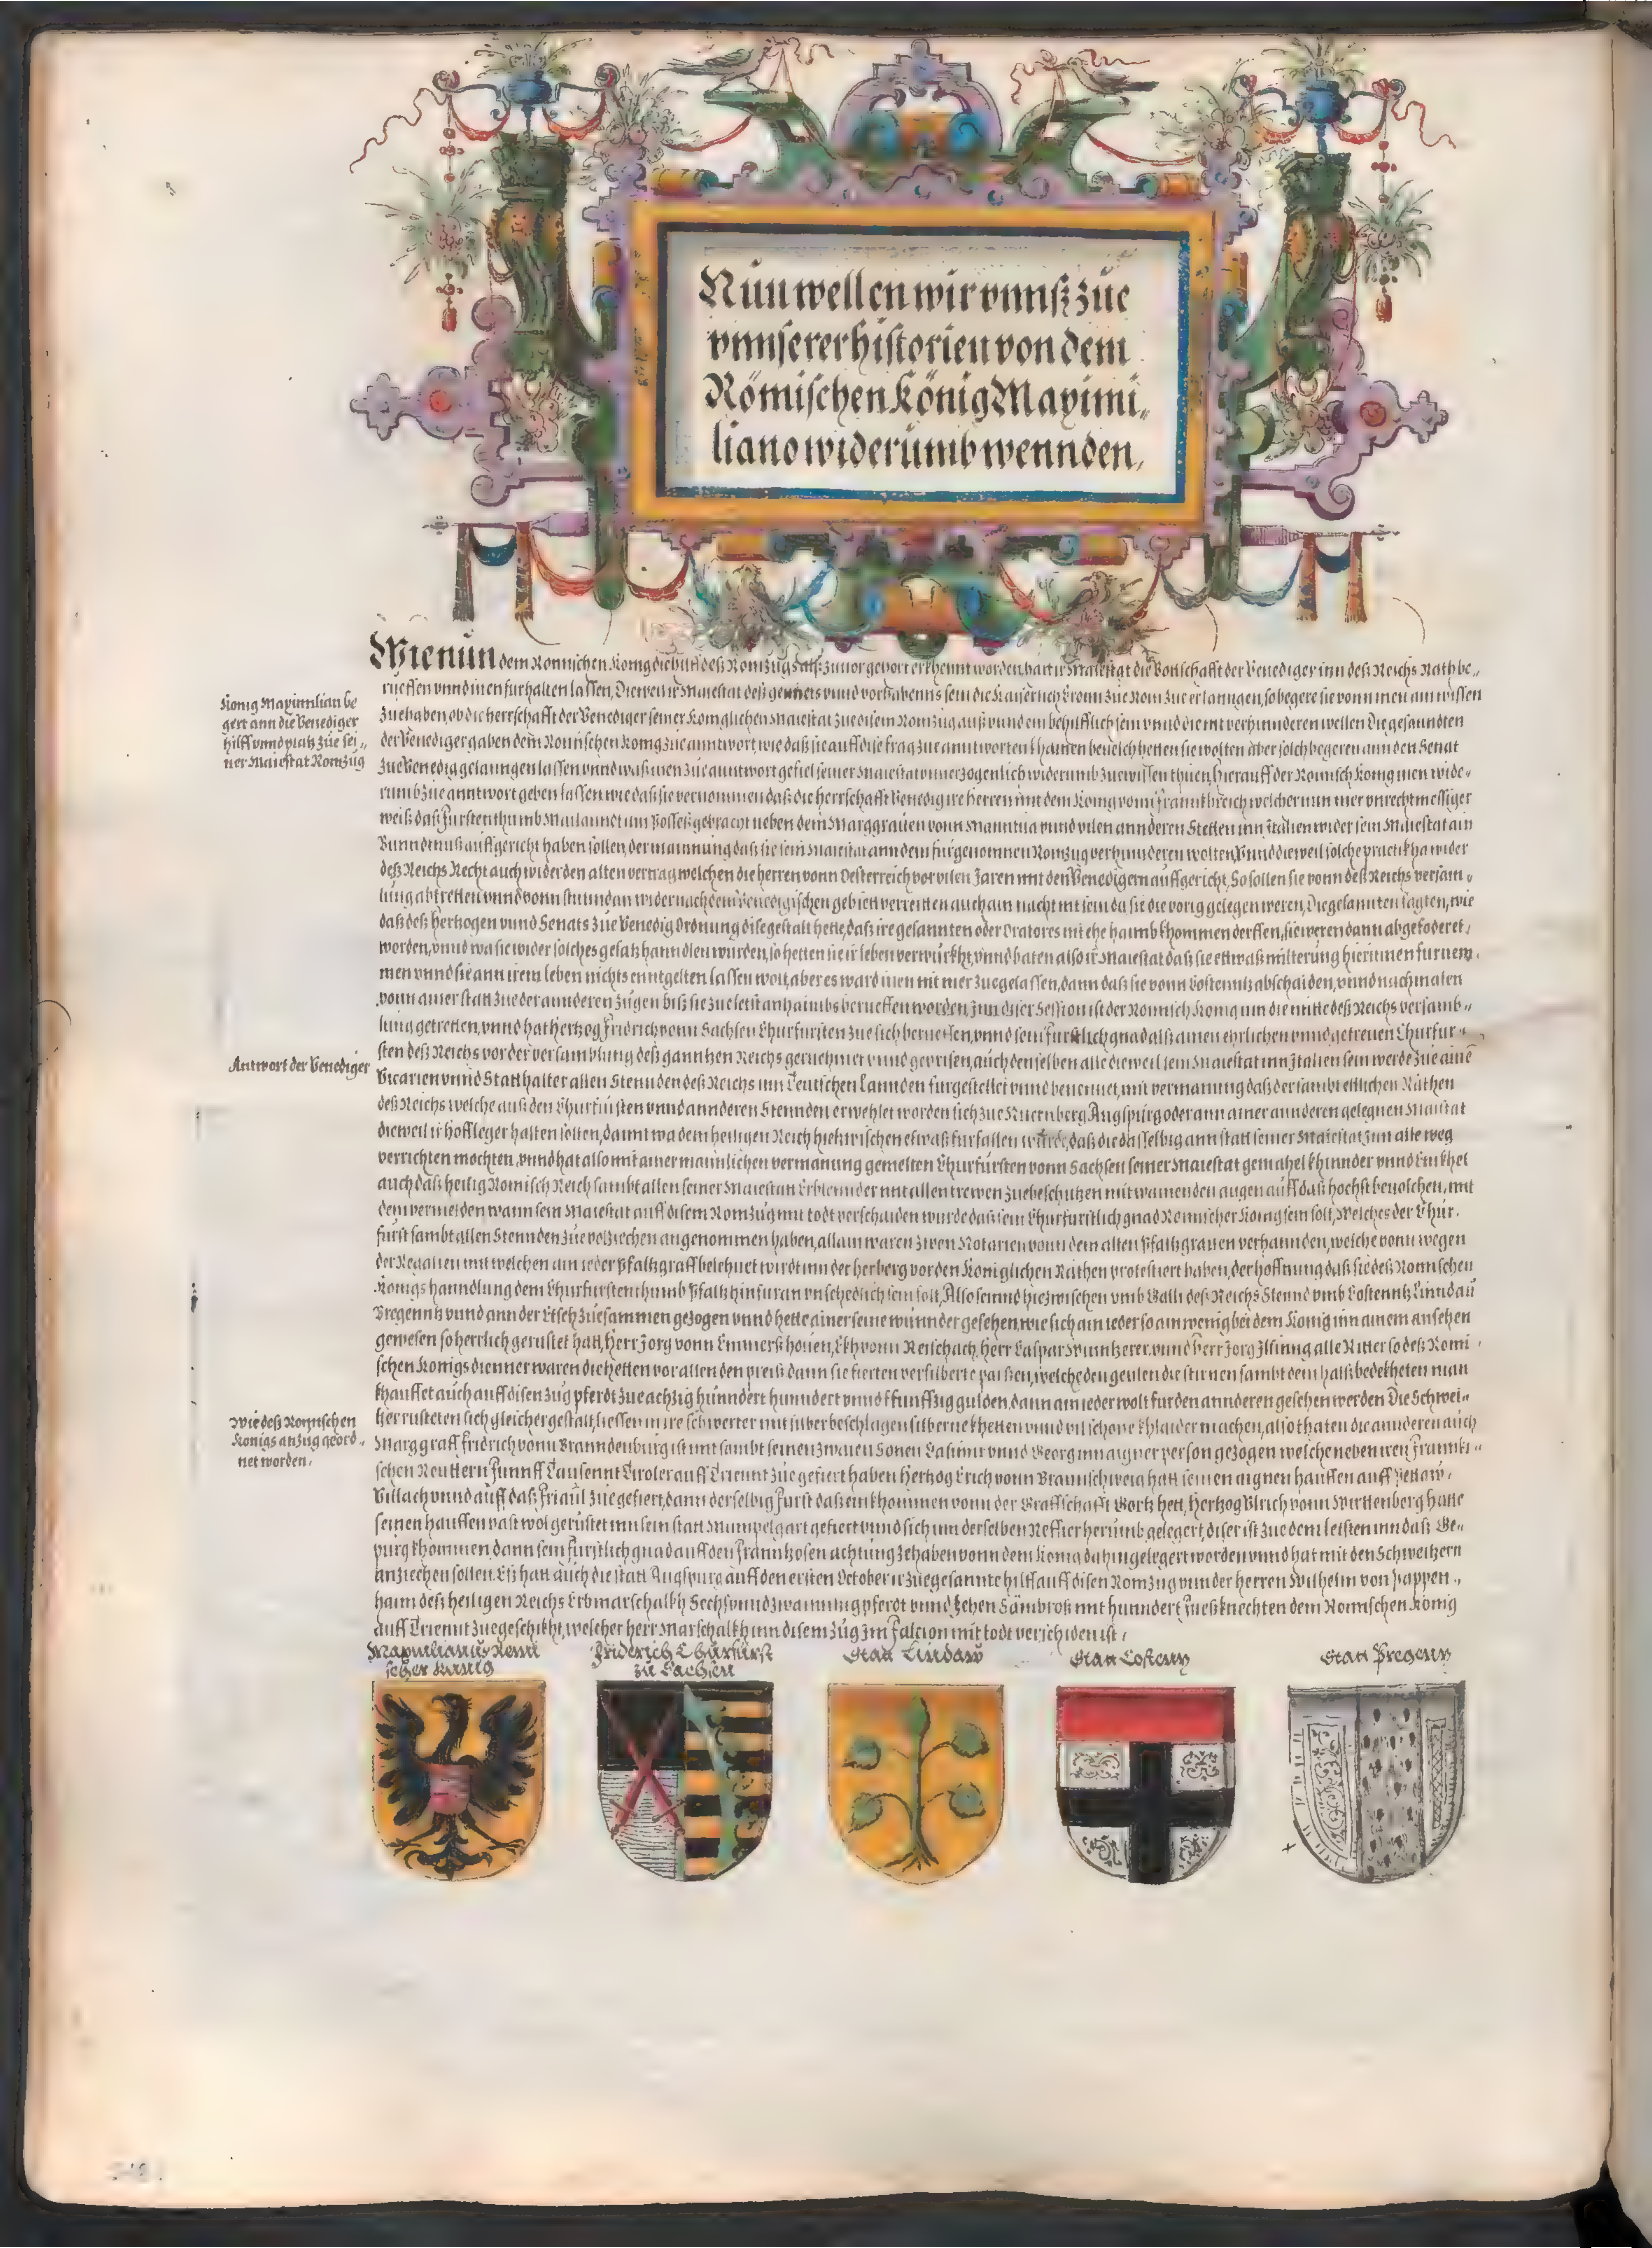 Nun wellen wir vnnß zue
vnnserer historien von dem
Römischen König Maximi„
liano widerumb wennden,
Wie nun dem Romischen Konig die hilff deß Romzugs alß zuuor gehört erkhennt worden, hat ir Maiestat die Bottschafft der Venediger inn deß Reichs Rath be„
rueffen vnnd inen furhalten lassen, Dieweil ir Maiestat deß gemiets vnnd vorhabenns sein die Kaiserlich Cronn zue Rom zue erlanngen, so begere sie vonn inen ain wissen
König Maximilian be
gert ann die Venediger
hilff vnnd platz zue sei„
ner Maiestat Romzug
zue haben, ob die herrschafft der Venediger seiner Koniglichen Maiestat zue disem Romzug auß vnnd ein behilfflich sein vnnd die nit verhinnderen wellen Die gesanndten
der Venediger gaben dem Romischen Konig zue anntwort, wie daß sie auff dise frag zue anntworten khainen beuelch hetten sie wolten aber solch begeren ann den Senat
zue Venedig gelanngen lassen vnnd waß inen zue anntwort gefiel seiner Maiestat vnuerzogenlich widerumb zuewissen thuen, hierauff der Romisch Konig inen wide„
rumb zue anntwort geben lassen wie daß sie vernommen daß die herrschafft Venedig ire herren mit dem Konig vonn Frannkhreich welcher nun mer vnrechtmessiger
weiß daß Furstenthumb Mailannd inn Possess gebracht neben dem Marggrauen vonn Manntua vnnd vilen annderen Stetten inn Italien wider sein Maiestat ain
Bunndtnuß auffgericht haben sollen, der mainnung daß sie sein Maiestat ann dem furgenomnen Romzug verhinnderen wolten, Vnnd dieweil solche practikha wider
deß Reichs Recht auch wider den alten vertrag welchen die herren vonn Oesterreich vor vilen Jaren mit den Venedigern auffgericht, So sollen sie vonn deß Reichs versam„
lung abtretten vnnd vonn stundan wider nach dem Venedigischen gebiett verreitten auch ain nacht nit sein da sie die vorig gelegen weren, Die gesannten sagten, wie
daß deß Hertzogen vnnd Senats zue Venedig Ordnung dise gestalt hette, daß ire gesannten oder Oratores nit ehe haimb khommen derffen, sie weren dann abgefoderet,
worden, vnnd wa sie wider solches gesatz hanndlen wurden, so hetten sie ir leben verwürkht, vnnd baten also ir Maiestat daß sie ettwaß milterung hierinnen furnem„
men vnnd sie ann irem leben nichts enntgelten lassen wolt, aber es ward inen nit mer zuegelassen, dann daß sie vonn Costennitz abschaiden, vnnd nachmalen
vonn ainer statt zue der annderen zugen biß sie zue letst anhaimbs berueffen worden, Inn diser Session ist der Romisch Konig inn die mitte deß Reichs versamb„
lung getretten, vnnd hat Hertzog Fridrich vonn Sachsen Churfursten zue sich berueffen, vnnd sein furstlich gnad alß ainen ehrlichen vnnd getreuen Churfur„
Antwort der Venediger
sten deß Reichs vor der versamblung deß ganntzen Reichs geruehmet vnnd geprisen, auch denselben alle dieweil sein Maiestat inn Italien sein werde zue ainē
Vicarien vnnd Statthalter allen Stennden deß Reichs inn Teutschen Lannden furgestellet vnnd benennet, mit vermanung daß der sambt ettlichen Räthen
deß Reichs welche auß den Churfürsten vnnd annderen Stennden erwehlet worden sich zue Nuernberg, Augspurg oder ann ainer annderen gelegnen Malstat
dieweil ir hoffleger halten solten, damit wa dem heiligen Reich hiezwischen etwaß furfallen würde, daß die dasselbig ann statt seiner Maiestat inn alle weg
verrichten mochten, vnnd hat also mit ainer mannlichen vermanung gemelten Churfursten vonn Sachsen seiner Maiestat gemahel khinnder vnnd Einkhel
auch daß heilig Romisch Reich sambt allen seiner Maiestat Erblennder mit allen trewen zue beschutzen mit wainenden augen auff daß hochst beuolchen, mit
dem vermelden wann sein Maiestat auff disem Romzug mit todt verschaiden wurde daß sein Churfurstlich gnad Romischer Konig sein soll, Welches der Chur„
fürst sambt allen Stennden zue volziechen angenommen haben, allain waren zwen Notarien vonn dem alten Pfaltzgrauen verhannden, welche vonn wegen
der Regalien mit welchen ain ieder Pfaltzgraff belehnet wirdt inn der herberg vor den Koniglichen Räthen protestiert haben, der hoffnung daß sie deß Romischen
Konigs hanndlung dem Churfurstenthumb Pfaltz hinfuran vnschedlich sein soll, Also seinnd hiezwischen vmb Galli deß Reichs Stennd vmb Costennitz Linndau
Bregenntz vnnd ann der Etsch zuesammen gezogen vnnd hette ainer seine wunnder gesehen, wie sich ain ieder so ain wenig bei dem Konig inn ainem ansehen
gewesen so herrlich gerustet hatt, Herr Jorg vonn Emmerßhouen, Ekh vonn Reischach, Herr Caspar Winntzerer vnnd Herr Jorg Ilsinng alle Ritter so deß Romi„
schen Konigs dienner waren die hetten vor allen den preiß dann sie fierten versilberte parßen, welche den geulen die stirnen sambt dem halß bedekheten man
khauffet auch auff disen zug pferdt zue achzig hunndert hunndert vnnd funffzig gulden, dann ain ieder wolt fur den annderen gesehen werden Die Schwei„
Wie deß Romischen
Königs anzug geord„
net worden,
tzer rusteten sich gleicher gestalt, liessen inn ire schwerter mit silber beschlagen silberne khetten vnnd vil schone khlaider machen, also thaten die annderen auch
Marggraff Fridrich vonn Branndenburg ist mit sambt seinen zwaien Sonen Casimir vnnd Georg inn aigner person gezogen welche neben iren Frannki„
schen Reuttern Funnff Tausennt Tiroler auff Triennt zue gefiert haben Hertzog Erich vonn Braunschweig hatt seinen aignen hauffen auff Pettaw,
Villach vnnd auff daß Friaul zue gefiert, dann derselbig Furst daß einkhommen vonn der Graffschafft Gortz hett, Hertzog Vlrich vonn Wirttenberg hatte
seinen hauffen vast wol gerustet inn sein statt Mumpelgart gefiert vnnd sich inn derselben Reffier herumb gelegert, diser ist zue dem letsten inn daß Ge„
purg khommen dann sein furstlich gnad auff den Frannkosen achtung zehaben vonn dem Konig dahin gelegert worden vnnd hat mit den Schweitzern
anziechen sollen. Eß hatt auch die statt Augspurg auff den ersten October ir zuegesannte hilff auff disen Romzug vnnder herren Wilhelm von Pappen„
haim deß heiligen Reichs Erbmarschalkh Sechs vnnd zwainnzig pferdt vnnd Zehen Sambroß mit hunndert Fueßknechten dem Romischen König
auff Triennt zuegeschikht, welcher herr Marschalkh inn disem zug Im Falcion mit todt verschiden ist,
Maximilianus Romi
scher Kunig
Friderich Churfürst
zu Sachsen
Statt Lindaw
Statt Costenz
Statt Pregenz